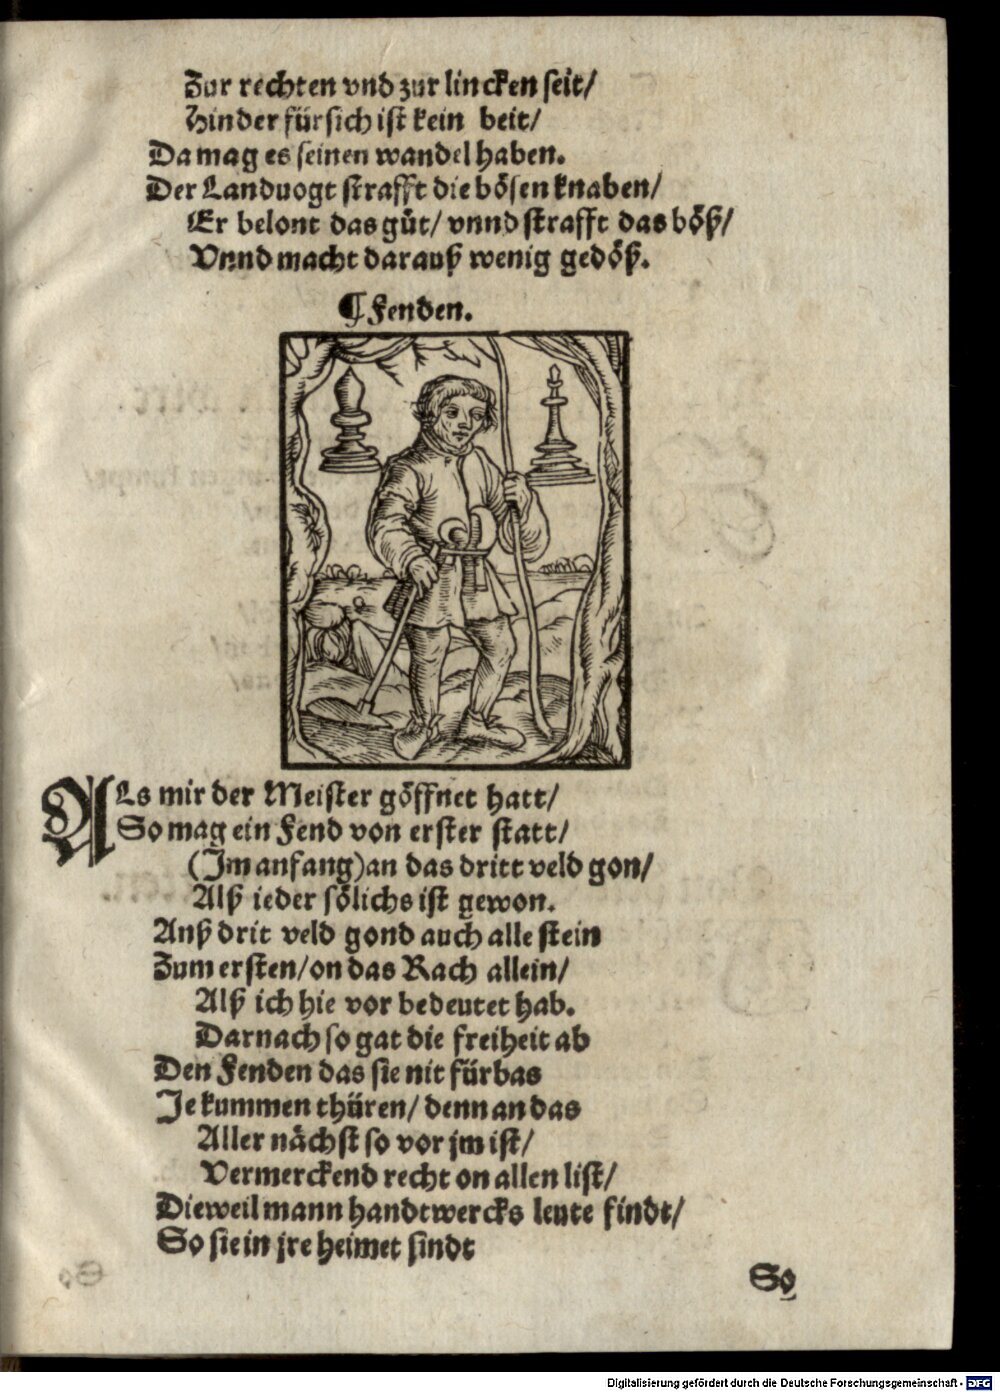 Zur rechten vnd zur lincken seit/
Hinder fürsich ist kein beit/
Da mag es seinen wandel haben.
Der Landuogt strafft die bösen knaben/
Er belont das gůt/ vnnd strafft das böß/
Vnnd macht darauß wenig gedöß.
¶ Fenden.
ALs mir der Meister göffnet hatt/
So mag ein Fend von erster statt/
(Im anfang) an das dritt veld gon/
Alß ieder sölichs ist gewon.
Anß drit veld gond auch alle stein
Zum ersten/ on das Rach allein/
Alß ich hie vor bedeutet hab.
Darnach so gat die freiheit ab
Den Fenden das sie nit fürbas
Je kummen thüren/ denn an das
Aller nächst so vor jm ist/
Vermerckend recht on allen list/
Dieweil mann handtwercks leute findt/
So sie in jre heimet sindt
So
Digitalisierung gefördert durch die Deutsche Forschungsgemeinschaft - DFG